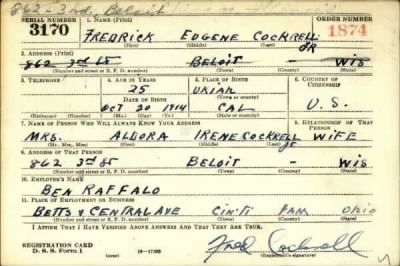 862-3rd, Beloit
SERIAL NUMBER 1. NAME (Print) ORDER NUMBER
3170 FREDRICK EUGENE COCKRELL JR 1874
(First) (Middle) (Last)
2. ADDRESS (Print)
862 3rd St BELOIT WIS
(Number and street or R. F. D. number) (Town) (County) (State)
3. TELEPHONE 4. AGE IN YEARS 5. PLACE OF BIRTH 6. COUNTRY OF CITIZENSHIP
25 UKIAH
DATE OF BIRTH (Town or county)
OCT 20 1914 CAL U.S.
(Exchange) (Number) (Mo.) (Day) (Yr.) (State or country)
7. NAME OF PERSON WHO WILL ALWAYS KNOW YOUR ADDRESS 8. RELATIONSHIP OF THAT PERSON
MRS. IRENE COCKRELL JR WIFE
(Mr., Mrs., Miss) (First) (Middle) (Last)
9. ADDRESS OF THAT PERSON
862 3rd St BELOIT WIS
(Number and street or R. F. D. number) (Town) (County) (State)
10. EMPLOYER'S NAME
BEN RAFFALO
11. PLACE OF EMPLOYMENT OR BUSINESS
BETTS & CENTRAL AVE CIN'TI HAM OHIO
(Number and street or R. F. D. number) (Town) (County) (State)
I AFFIRM THAT I HAVE VERIFIED ABOVE ANSWERS AND THAT THEY ARE TRUE.
REGISTRATION CARD
D. S. S. Form 1 (over) Fred Cockrell
(Registrant's signature)